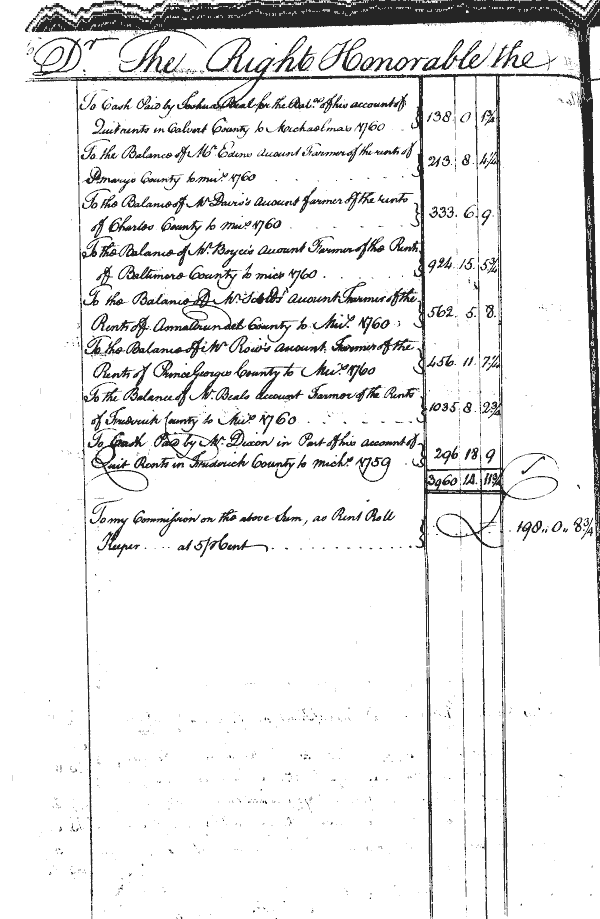 Dr. The Right Honorable the
To Cash Paid by Joshua Beal for the Balce. of his account of
Quitrents in Calvert County to Michaelmas 1760 . . } 138 . 0 . 1¾
To the Balance of Mr. Edens account Farmer of the rents of
St. marys County to mics. 1760 } 213 . 8 . 4¼
To the Balance of Mr. Davis's Account farmer of the rents
of Charles County to mics. 1760 . . . . } 333 . 6 . 9
To the Balance of Mr. Boyces Account Farmer of the Rents
of Baltimore County to mics 1760 . . . . . } 924 . 15 . 5¾
To the Balance of Mr. Account Farmer of the
Rents of AnnaArundel County to Mics. 1760 : } 562 . 5 . 8
To the Balance of Mr. Row's Account, Farmer of the
Rents of Prince Georges County to Mics. 1760 } 456 . 11 . 7¼
To the Balance of Mr. Beals account Farmer of the Rents
of Frederick County to Mics. 1760 . . . . . } 1035 . 8 . 2¾
To Cash Paid by Mr. Dixon in Part of his account of
Quit Rents in Frederick County to michs. 1759 } 296 18 9
3960 . 14 . 11¾
To my Commission on the above Sum, as Rent Roll
Keeper . . . . at 5 / Cent . . . . . . . . } 198 .. 0 .. 8¾